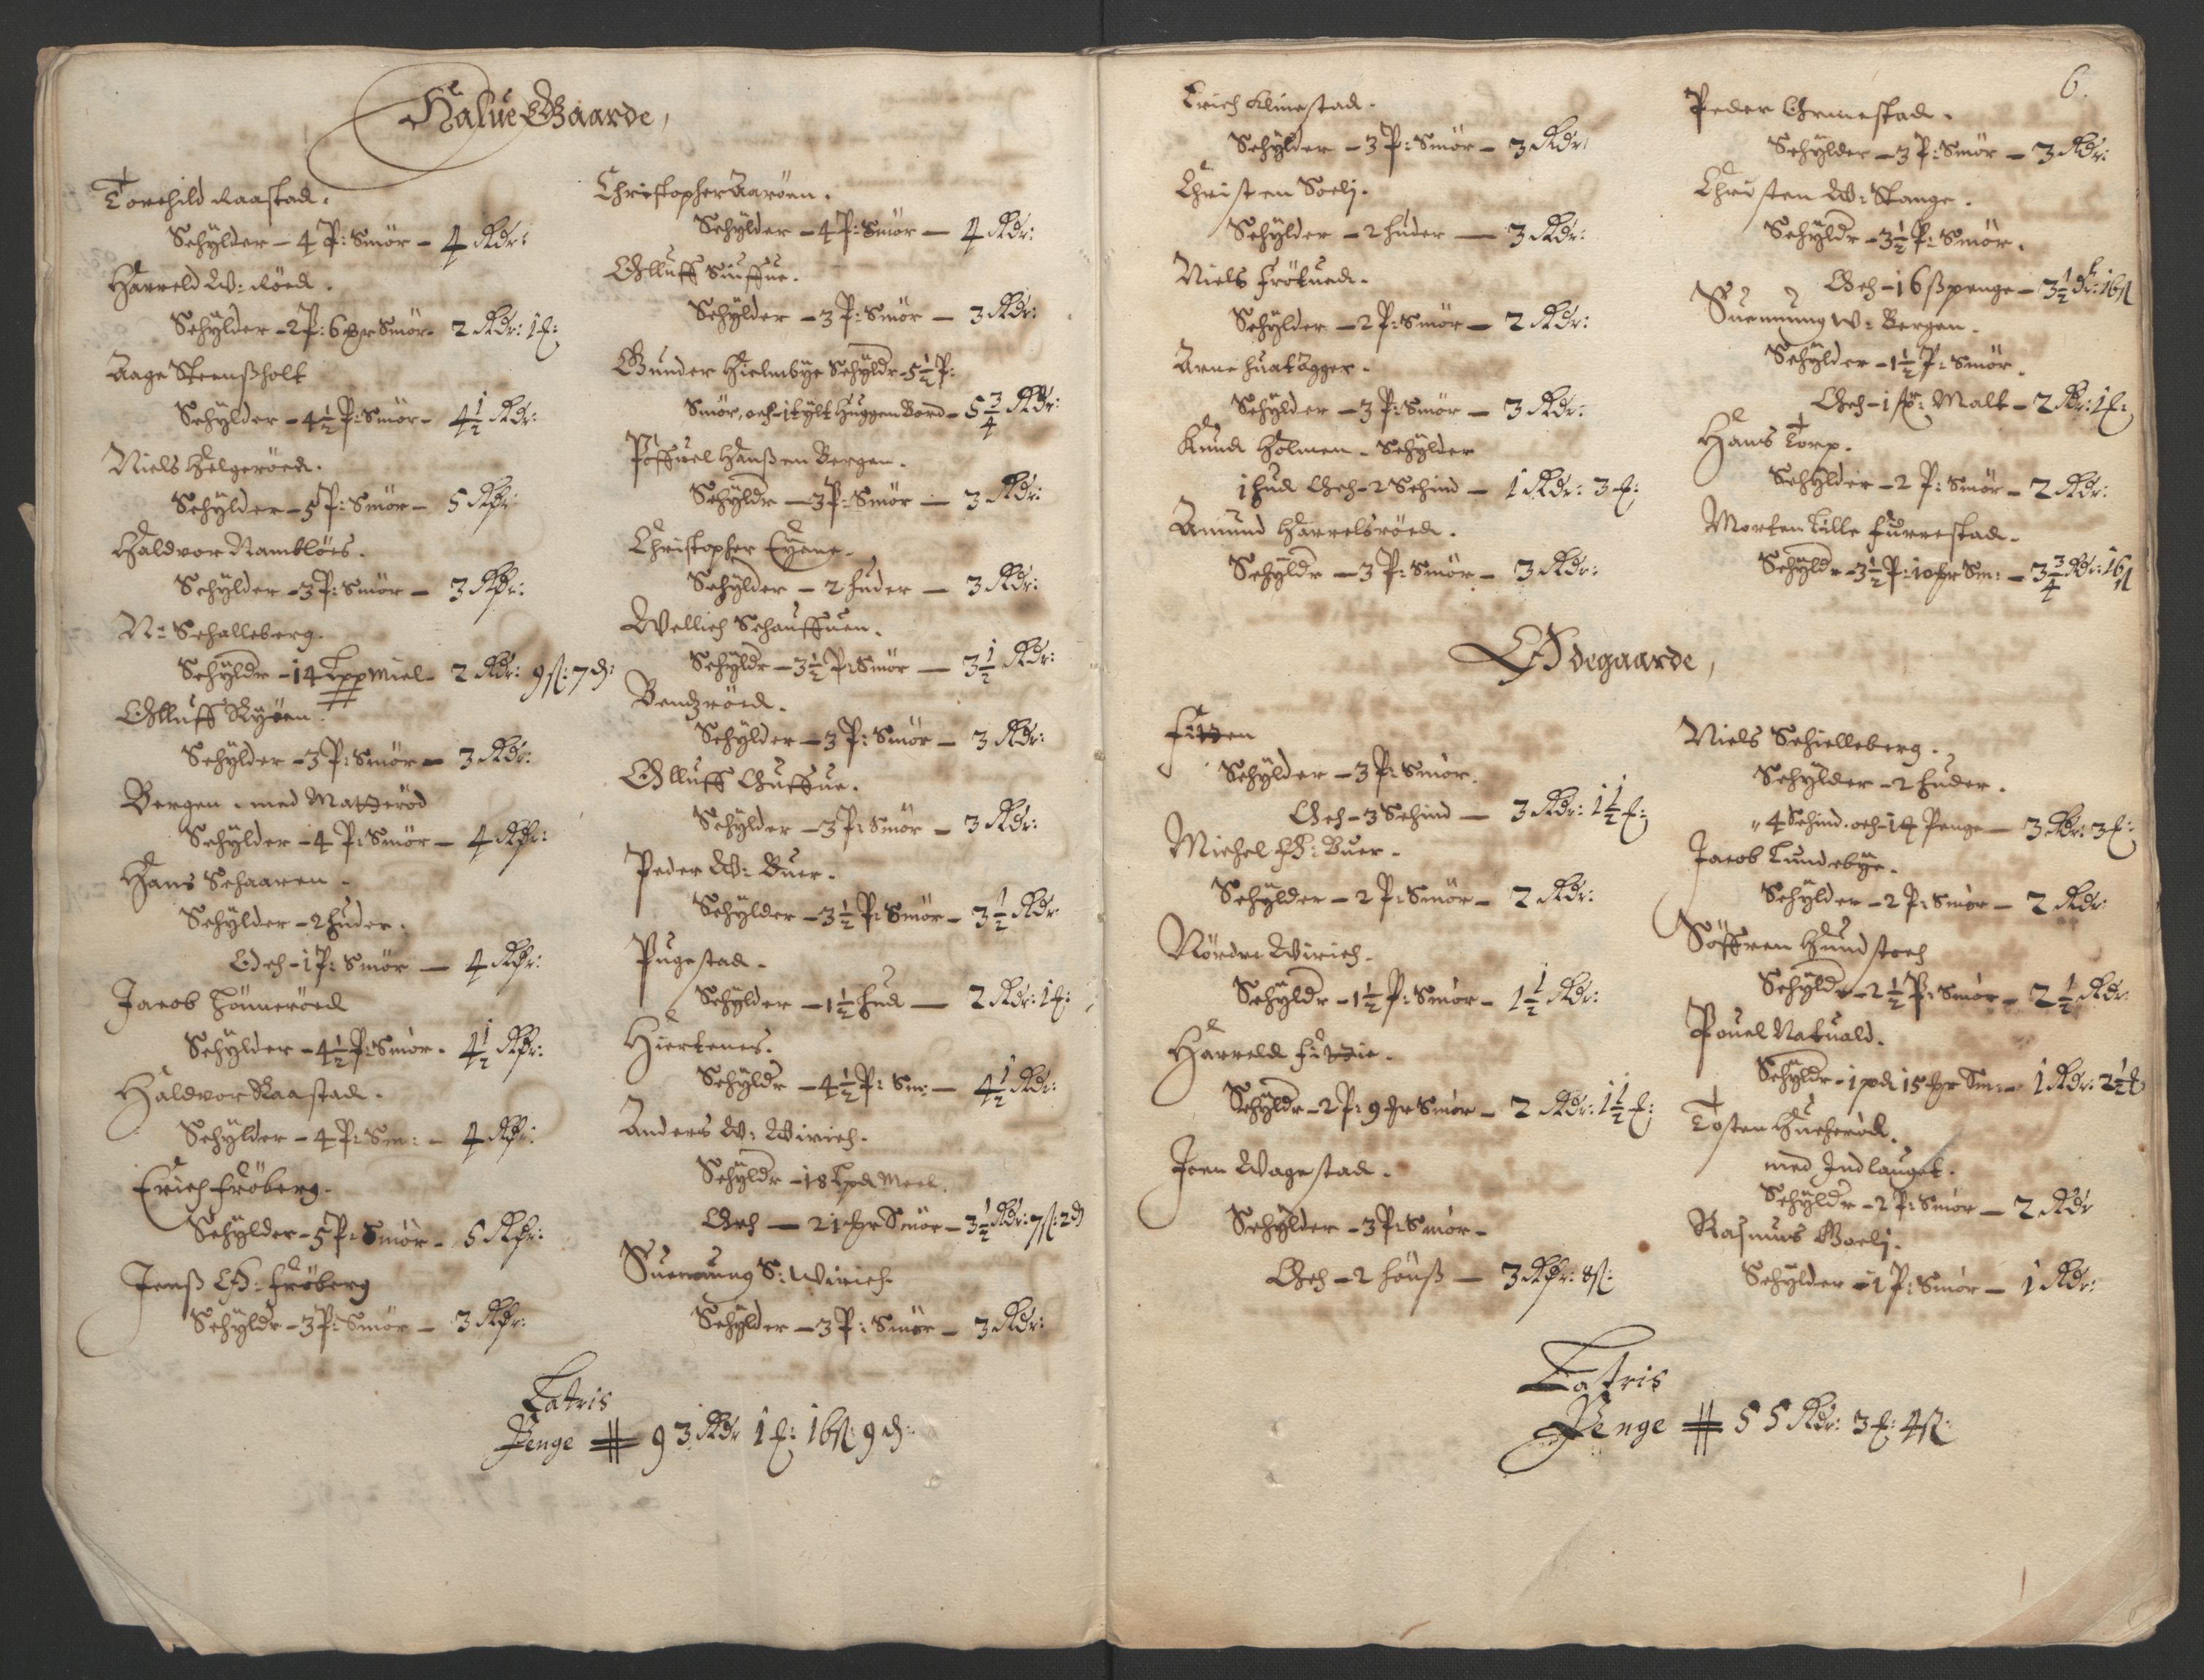 Halue Gaarde,
Torchild Raastad.
Schylder - 4 P: Smör - 4 Rdr:
Harreld W: Röed.
Schylder - 2 P: 6 mr Smör - 2 Rdr: 1 ƒ:
Aage Steenßholt
Schylder - 4½ P: Smör - 4½ Rdr:
Niels Helgeröed.
Schylder - 5 P: Smör - 5 Rdr:
Haldvor Ramblöes.
Schylder - 3 P: Smör - 3 Rdr:
N: Schalleberg.
Schyldr - 14 Lpp Miel - 2 Rdr: 9 ß: 7 d:
Olluff Ryöen.
Schylder - 3 P: Smör - 3 Rdr:
Bergen. med Matteröd
Schylder - 4 P: Smör - 4 Rdr:
Hans Schaaren.
Schylder - 2 huder.
Och - 1 P: Smör - 4 Rdr:
Jacob Tönneröed
Schylder - 4½ P: Smör - 4½ Rdr:
Haldvor Raastad.
Schylder - 4 P: Sm: - 4 Rdr:
Erich Fröberg.
Schylder - 5 P: Smör - 5 Rdr:
Jenß Ö: Fröberg
Schyldr - 3 P: Smör - 3 Rdr:
Christopher Aaröen.
Schylder - 4 P: Smör - 4 Rdr:
Olluff Siuffue.
Schylder - 3 P: Smör - 3 Rdr:
Gunder Hielmbye Schyldr - 5½ P:
Smör, och - 1 tylt Huggen Bord - 5¾ Rdr:
Poffuel Hanßen Bergen.
Schyldr - 3 P: Smör - 3 Rdr:
Christopher Eyene.
Schylder - 2 huder - 3 Rdr:
Wellich Schauffuen.
Schyldr - 3½ P: Smör - 3½ Rdr:
Bendzröed.
Schylder - 3 P: Smör - 3 Rdr:
Olluff Guffue.
Schylder - 3 P: Smör - 3 Rdr:
Peder W: Buer.
Schylder - 3½ P: Smör - 3½ Rdr
Pugestad.
Schylder - 1½ hud - 2 Rdr: 1 ƒ:
Hiertenes.
Schyldr - 4½ P: Sm: - 4½ Rdr:
Anders W: Wirich.
Schyldr - 18 Lpd Meel.
Och - 21 mr Smör - 3½ Rdr: 7 ß: 2 d
Suennung S: Wirich
Schylder - 3 P: Smör - 3 Rdr:
Latris
Penge 93 Rdr 1 ƒ: 16 ß: 9 d:
6.
Erich Klinestad.
Schylder - 3 P: Smör - 3 Rdr:
Christen Soelj.
Schylder - 2 huder - 3 Rdr:
Niels Frötued.
Schylder - 2 P: Smör - 2 Rdr:
Arne Huatagger.
Schylder - 3 P: Smör - 3 Rdr:
Knud Holmen. Schylder
1 hud Och - 2 Schind - 1 Rdr: 3 ƒ:
Amund Harrelsröed.
Schyldr - 3 P: Smör - 3 Rdr:
Peder Ormestad.
Schylder - 3 P: Smör - 3 Rdr:
Christen W: Stange.
Schyldr - 3½ P: Smör.
Och - 16 ß penge - 3½ dr: 16 ß
Suennung W: Bergen.
Schylder - 1½ P: Smör.
Och - 1 sp: Malt - 2 Rdr: 1 ƒ:
Hans Torp.
Schylder - 2 P: Smör - 2 Rdr:
Morten Lille Furrestad.
Schyldr - 3½ P: 10 mr Sm: - 3¾ Rdr: 16 ß
Ødegaarde,
Fitzen
Schylder - 3 P: Smör.
Och - 3 Schind - 3 Rdr: 1½ ƒ:
Michel Ö: Buer.
Schylder - 2 P: Smör - 2 Rdr:
Nördre Wirich.
Schyldr - 1½ P: Smör - 1½ Rdr:
Harreld Fitzie.
Schyldr - 2 P: 9 mr Smör - 2 Rdr: 1½ ƒ:
Joen Wagestad.
Schylder - 3 P: Smör -
Och - 2 hönß - 3 Rdr: 8 ß:
Niels Schielleberg.
Schylder - 2 huder.
4 Schind. och - 1 ƒ Penge - 3 Rdr: 3 ƒ:
Jacob Lundebye.
Schylder - 2 P: Smör - 2 Rdr:
Söffren Hundstoch
Schyldr - 2½ P: Smör - 2½ Rdr:
Pouel Natuald.
Schyldr - 1 pd 15 mr Sm: - 1 Rdr: 2½ ƒ
Tosten Hueseröd.
med Indlauget.
Schyldr - 2 P: Smör - 2 Rdr
Rasmus Goelj.
Schylder - 1 P: Smör - 1 Rdr:
Latris
Penge 55 Rdr: 3 ƒ: 4 ß: